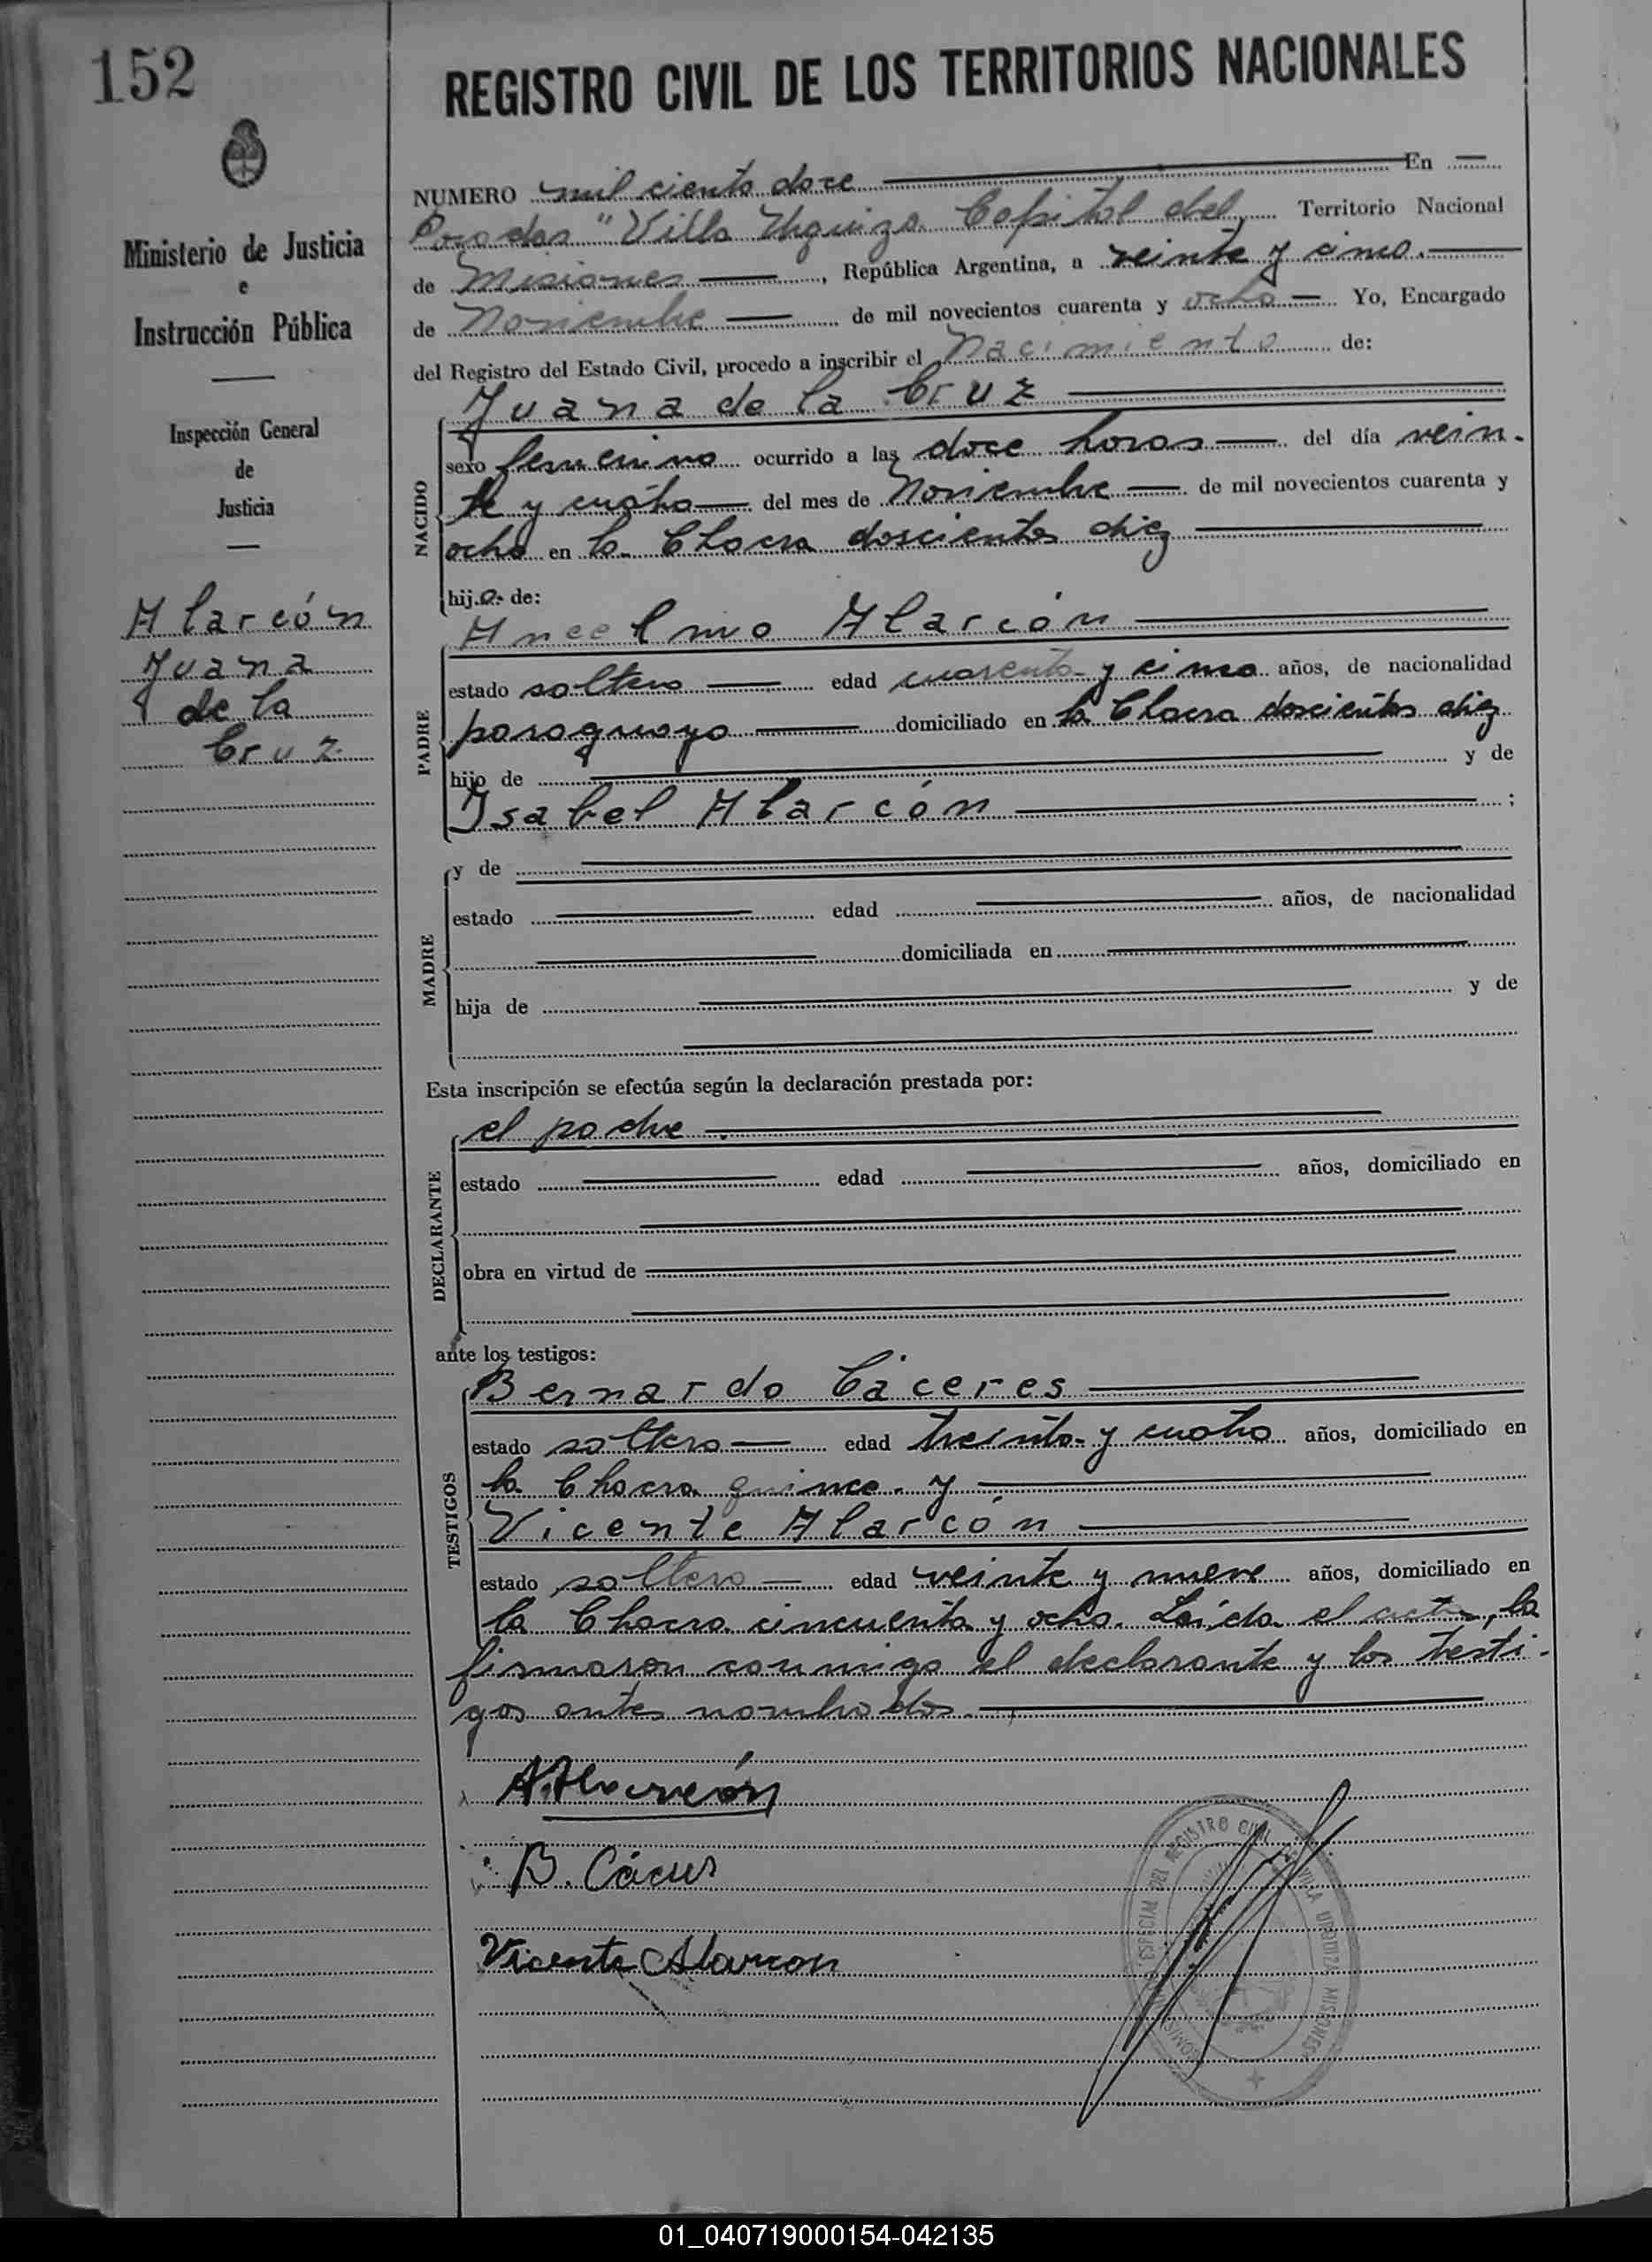 152
REGISTRO CIVIL DE LOS TERRITORIOS NACIONALES
Ministerio de Justicia
e
Instrucción Pública
Inspección General
de
Justicia
Alarcón
Juana
de la
Cruz
NUMERO mil ciento doce En
Posadas "Villa Urquiza Capital del Territorio Nacional
de Misiones, República Argentina, a veinte y cinco.
de Noviembre de mil novecientos cuarenta y ocho Yo, Encargado
del Registro del Estado Civil, procedo a inscribir el Nacimiento de:
NACIDO
Juana de la Cruz
sexo femenino ocurrido a las doce horas del día vein-
te y cuatro del mes de Noviembre de mil novecientos cuarenta y
ocho en la Chacra doscientos diez
hija de:
PADRE
Ancelmo Alarcón
estado soltero edad cuarenta y cinco años, de nacionalidad
paraguayo domiciliado en la Chacra doscientos diez
hijo de y de
Isabel Alarcón ;
MADRE
y de
estado edad años, de nacionalidad
domiciliada en
hija de y de
Esta inscripción se efectúa según la declaración prestada por:
DECLARANTE
el padre
estado edad años, domiciliado en
obra en virtud de
ante los testigos:
TESTIGOS
Bernardo Cáceres
estado soltero edad treinta y cuatro años, domiciliado en
la Chacra quince. y
Vicente Alarcón
estado soltero edad veinte y nueve años, domiciliado en
la Chacra cincuenta y ocho. Leída el acta, la
firmaron conmigo el declarante y los testi-
gos antes nombrados.
A. Alarcón
B. Cáceres
Vicente Alarcon
ESPECIAL DEL REGISTRO CIVIL VILLA URQUIZA MISIONES
01_040719000154-042135